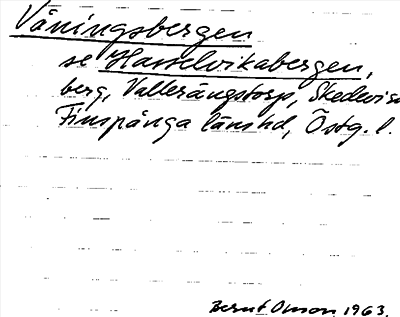 Våningsbergen
se Hasselvikabergen,
berg, Vallerängstorp, Skedevi sn
Finspånga länshd, Östg. l.
Bernt Olsson 1963.